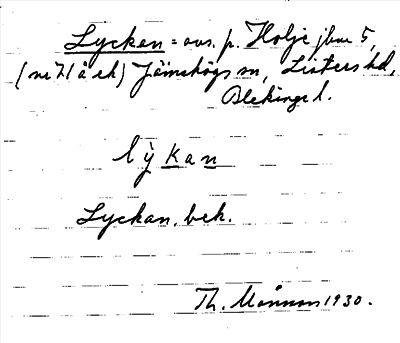 Lyckan = avs. p. Holje jbm 5,
(nr 71 å ek) Jämshögs sn, Listers hd,
Blekinge l.
lỳkan
Lyckan. bek.
Th. Månsson 1930.